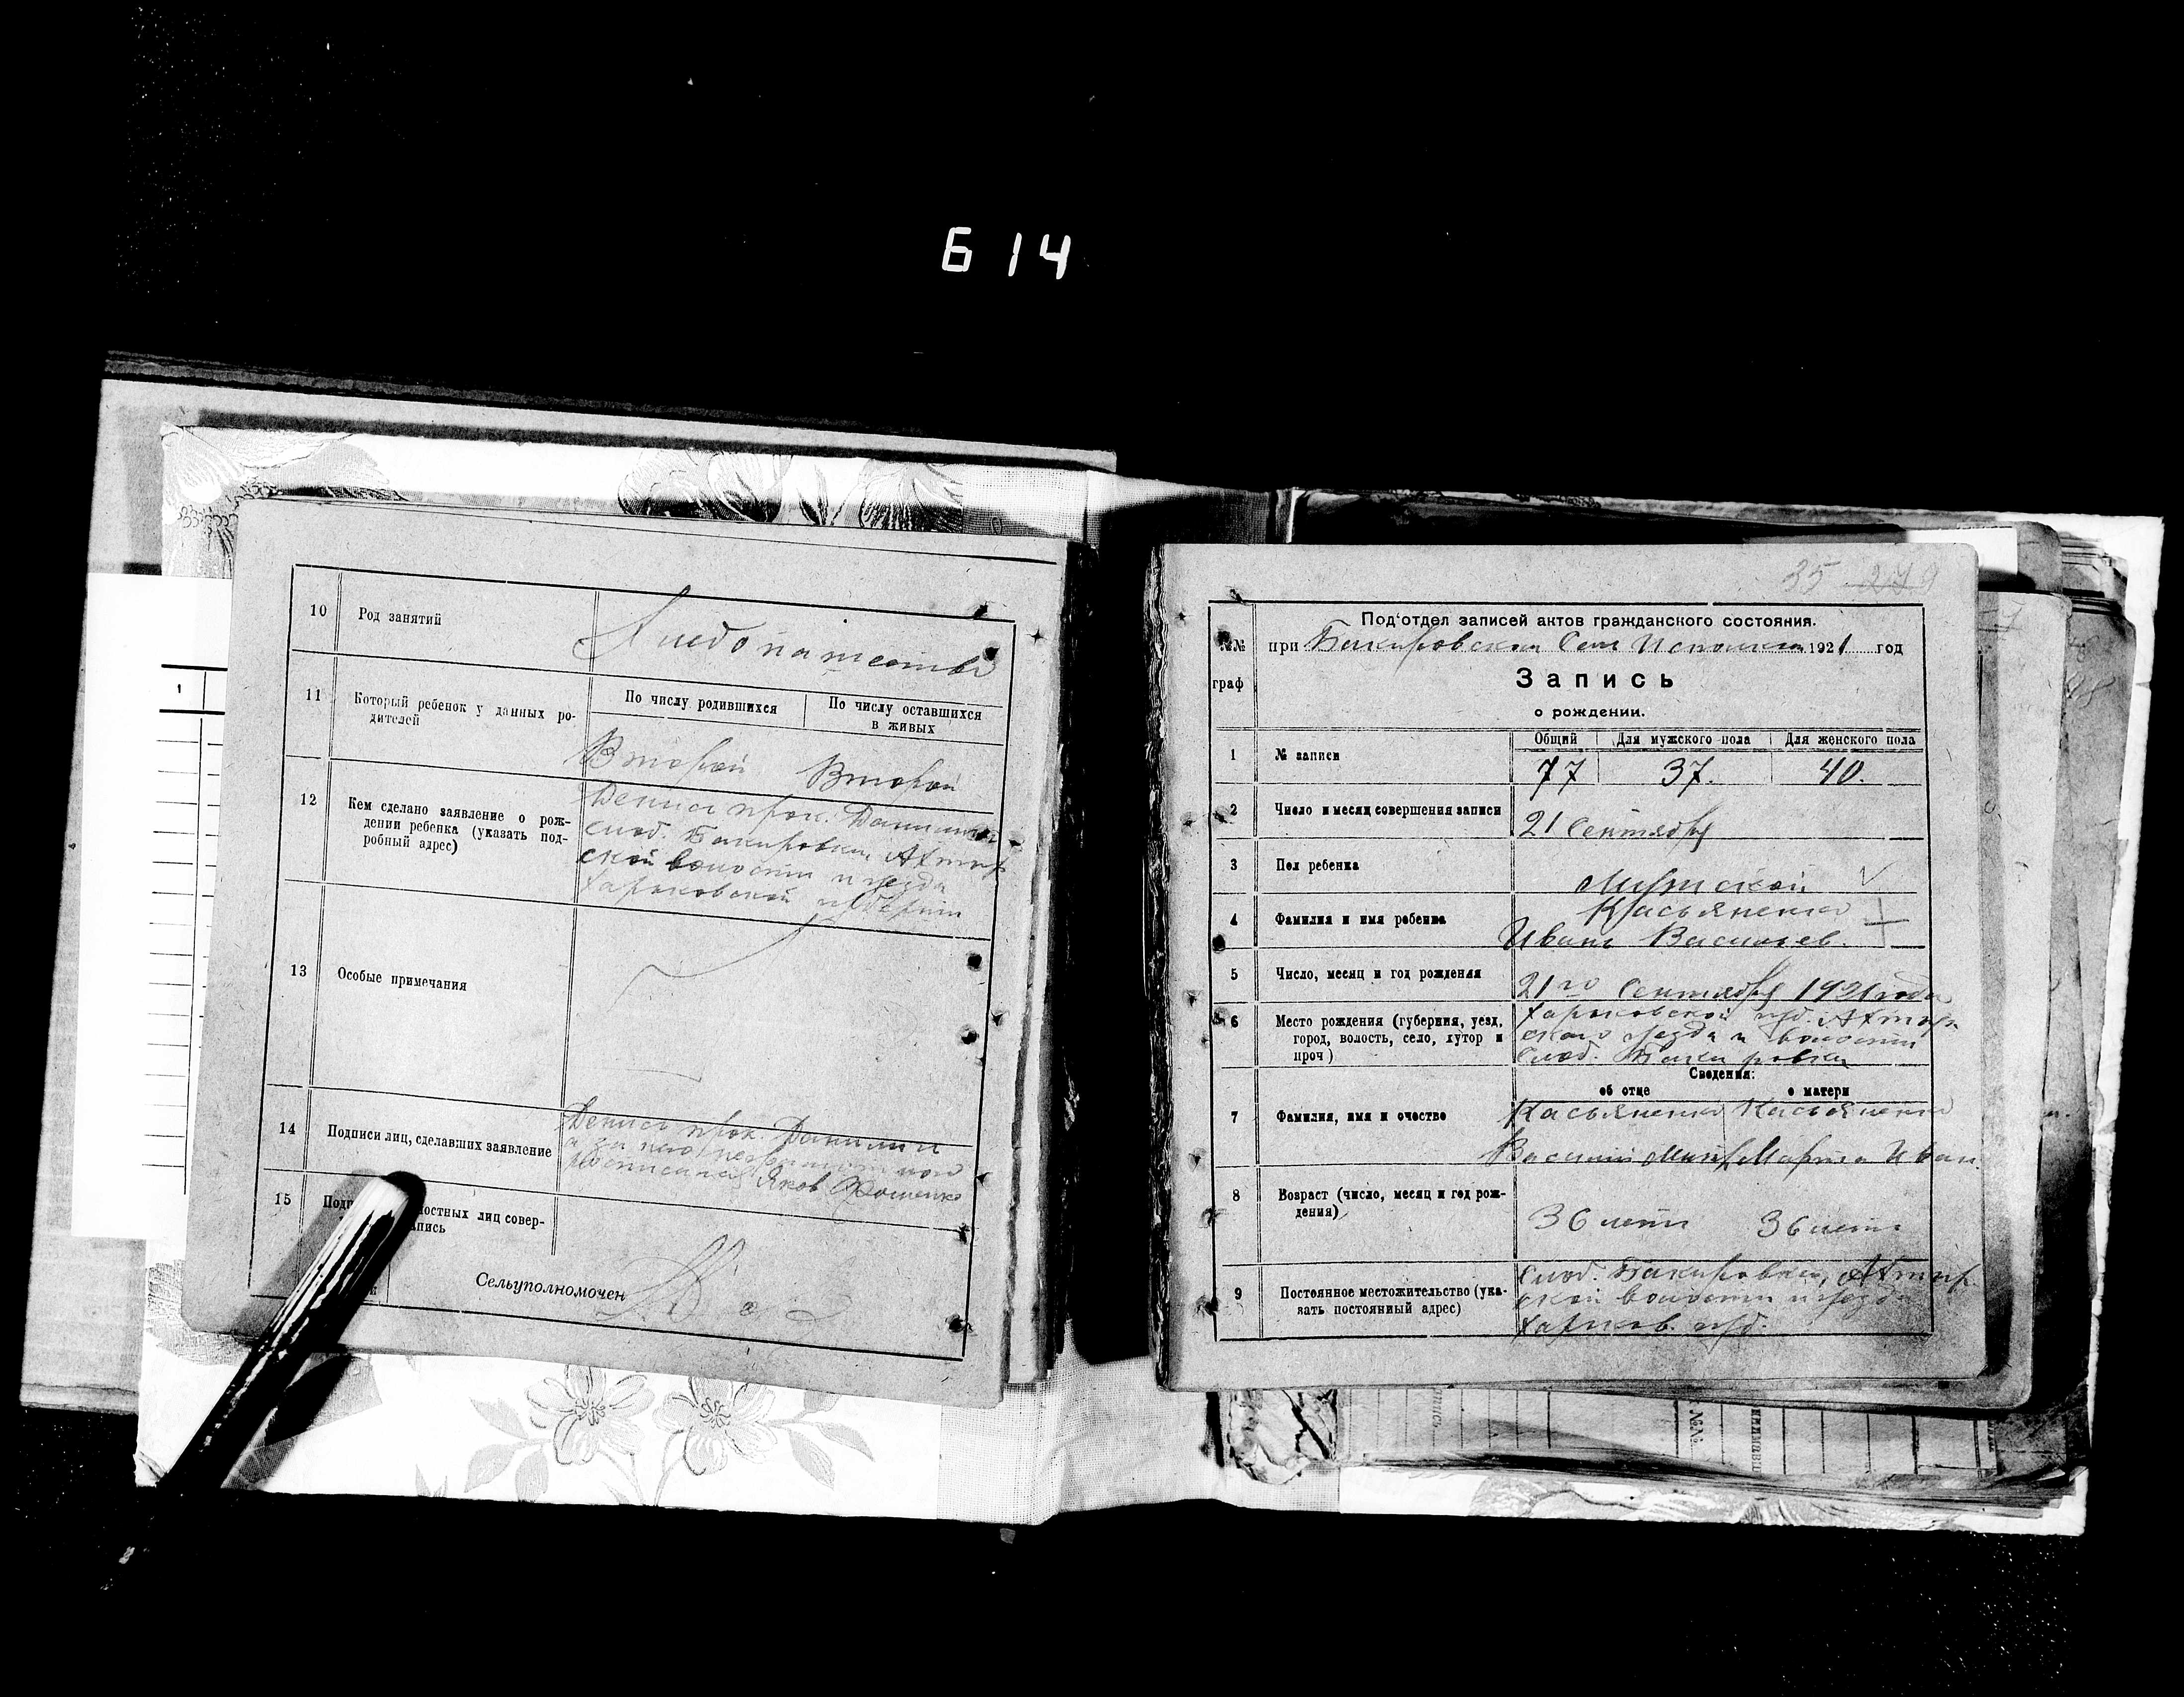 614
10 Род занятий
Хлебопашество
11 Который ребенок у данных ро-
дителей
По числу родившихся
По числу оставшихся
в живых
Второй Второй
12 Кем сделано заявление о рож-
дении ребенка (указать под-
робный адрес)
Денис прок. Данилин
Слоб. Бакировки Ахтыр
ской волости и уезда
Харьковской губернии
13 Особые примечания
14 Подписи лиц, сделавших заявление
Денис прок. Данилин
а за него неграмотного
Росписался Яков
15 Под остных лиц совер-
апись
Сельуполномочен
35 279
№№
граф
Под'отдел записей актов гражданского состояния.
при Бакировском Сель Исполкоме 1921 год
Запись
о рождении.
1 № записи
Общий Для мужского пола Для женского пола
77 37. 40.
2 Число и месяц совершения записи
21 Сентября
3 Пол ребенка
Мужской
4 Фамилия и имя ребенка
Касьяненко
Иван Васильев.
5 Число, месяц и год рождения
21го Сентября 1921 года
6 Место рождения (губерния, уезд,
город, волость, село, хутор и
проч)
Харьковской губ. Ахтыр
ского уезда и волости
Слоб. Бакировка
Сведения:
об отце о матери
7 Фамилия, имя и очество
Касьяненко Касьяненко
Василий Марфа Иван.
8 Возраст (число, месяц и год рож-
дения)
36 лет 36 лет
9 Постоянное местожительство (ука-
зать постоянный адрес)
Слоб. Бакировки, Ахтыр.
ской волости и уезда
Харьков. губ.